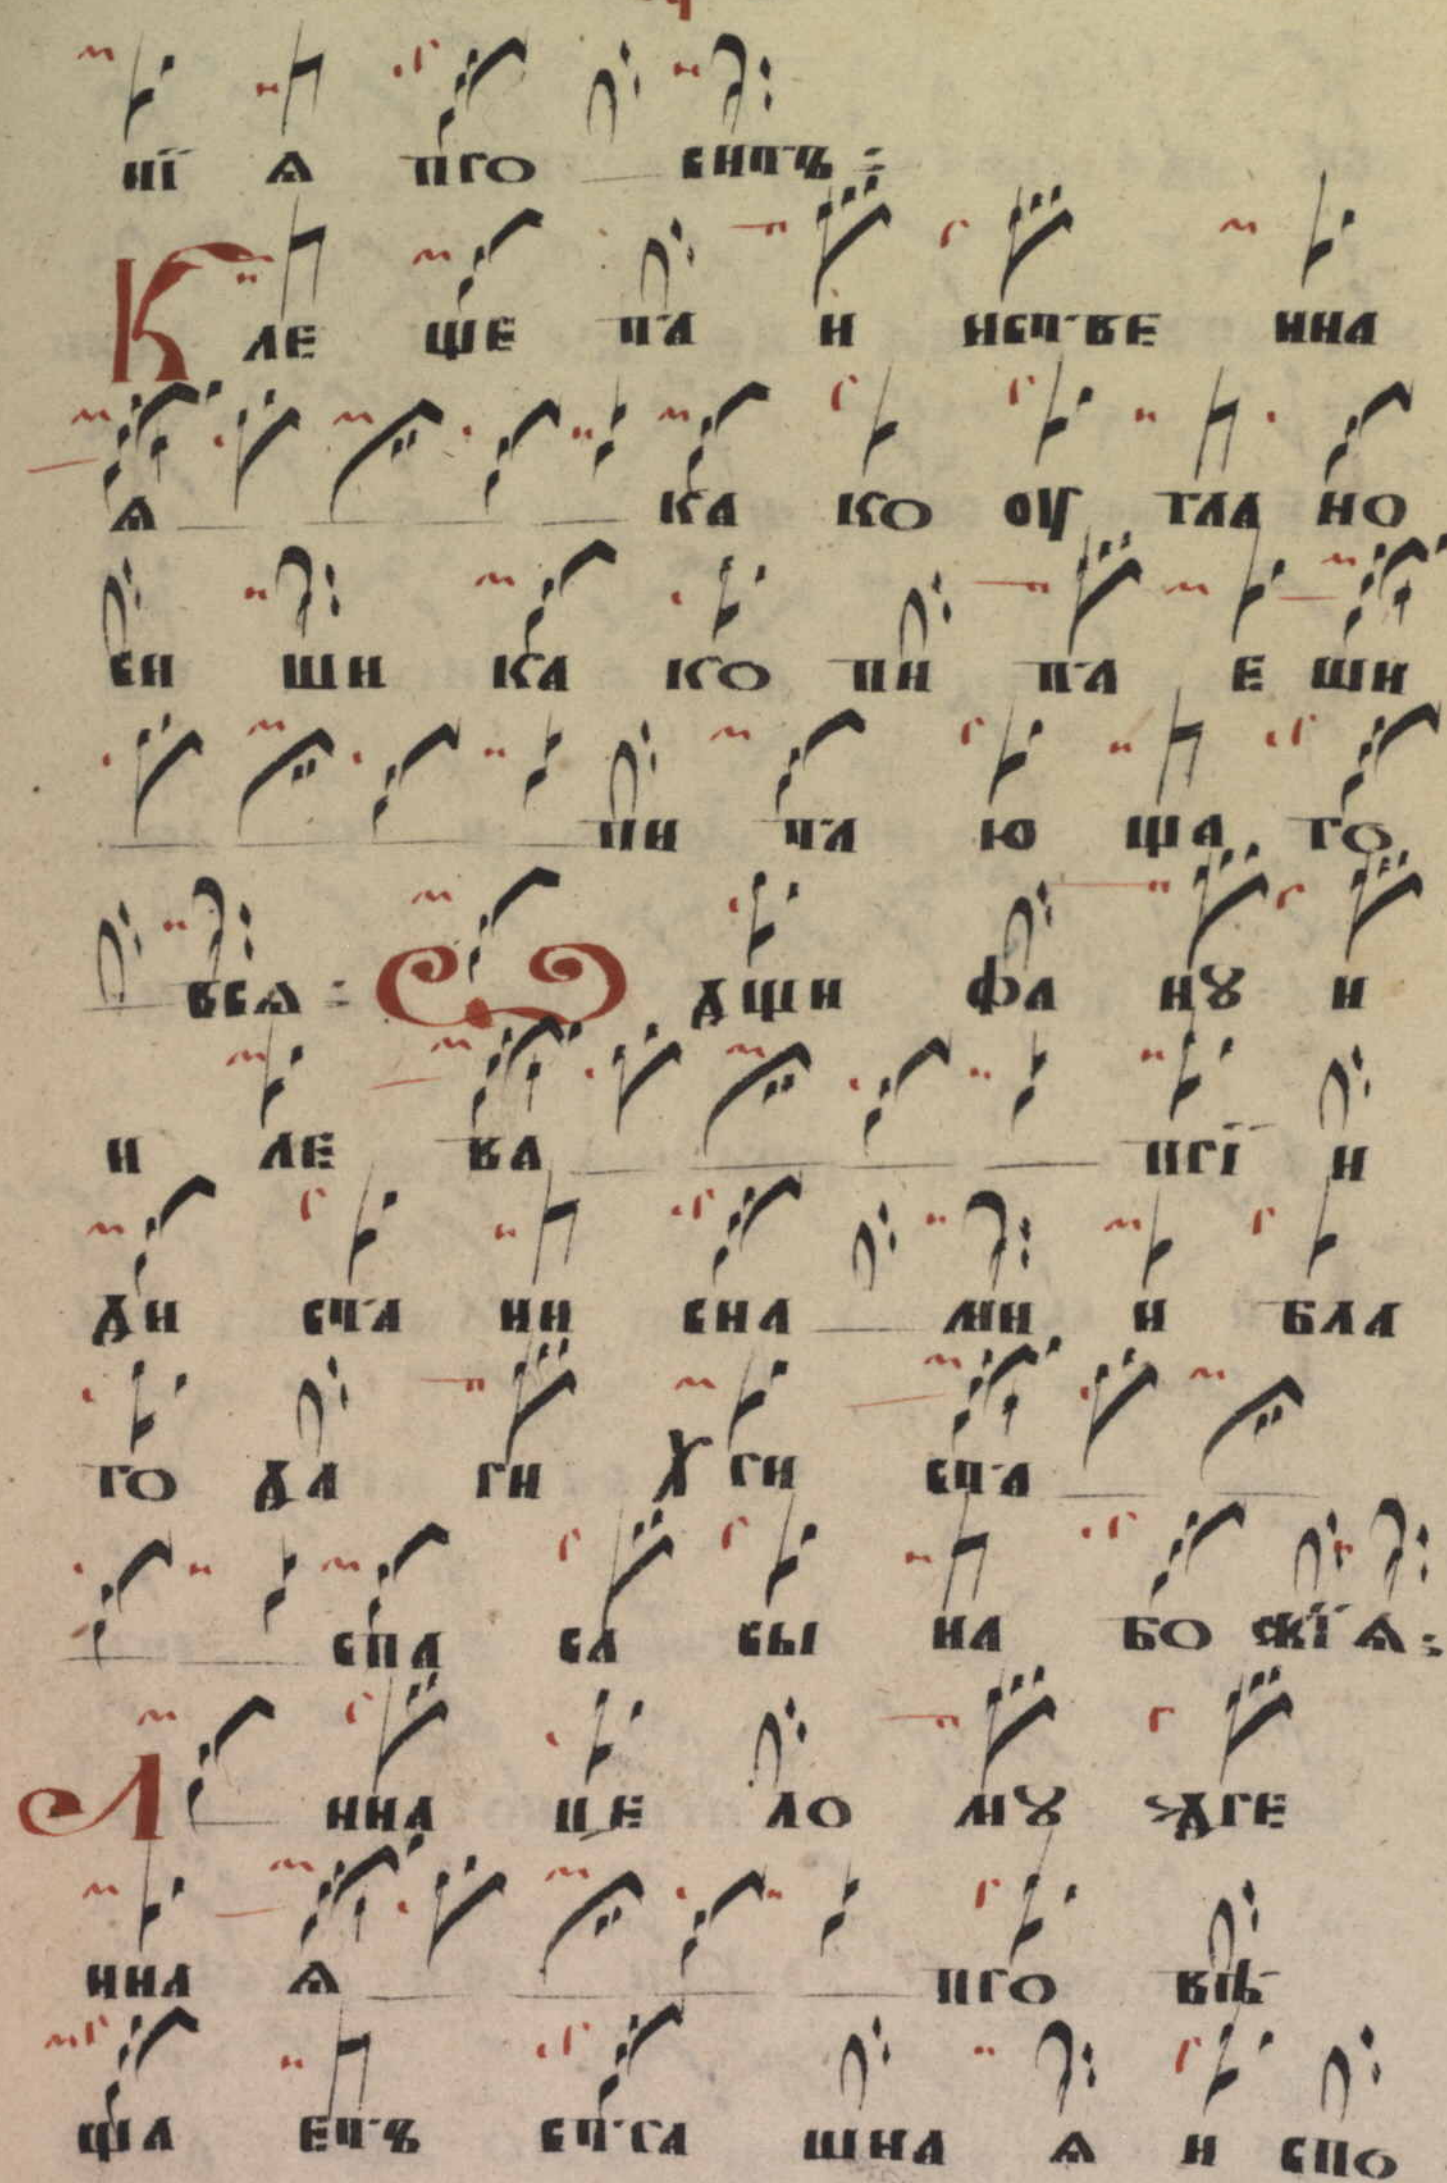 нїѧ проситъ:
Кле ще та и нстве нна
ѧ ка ко оу глѧ но
си ши ка ко пи та е ши
пи та ю ща го
всѧ: Ѡ дщи фа нꙋ и
и ле ва прї и
ди ста ни сна ми и бла
го да ри х ри ста
спа са сы на бо жїѧ:
А нна це ло мꙋ дре
нна ѧ про вѣ
ща етъ стра шна ѧ и спо